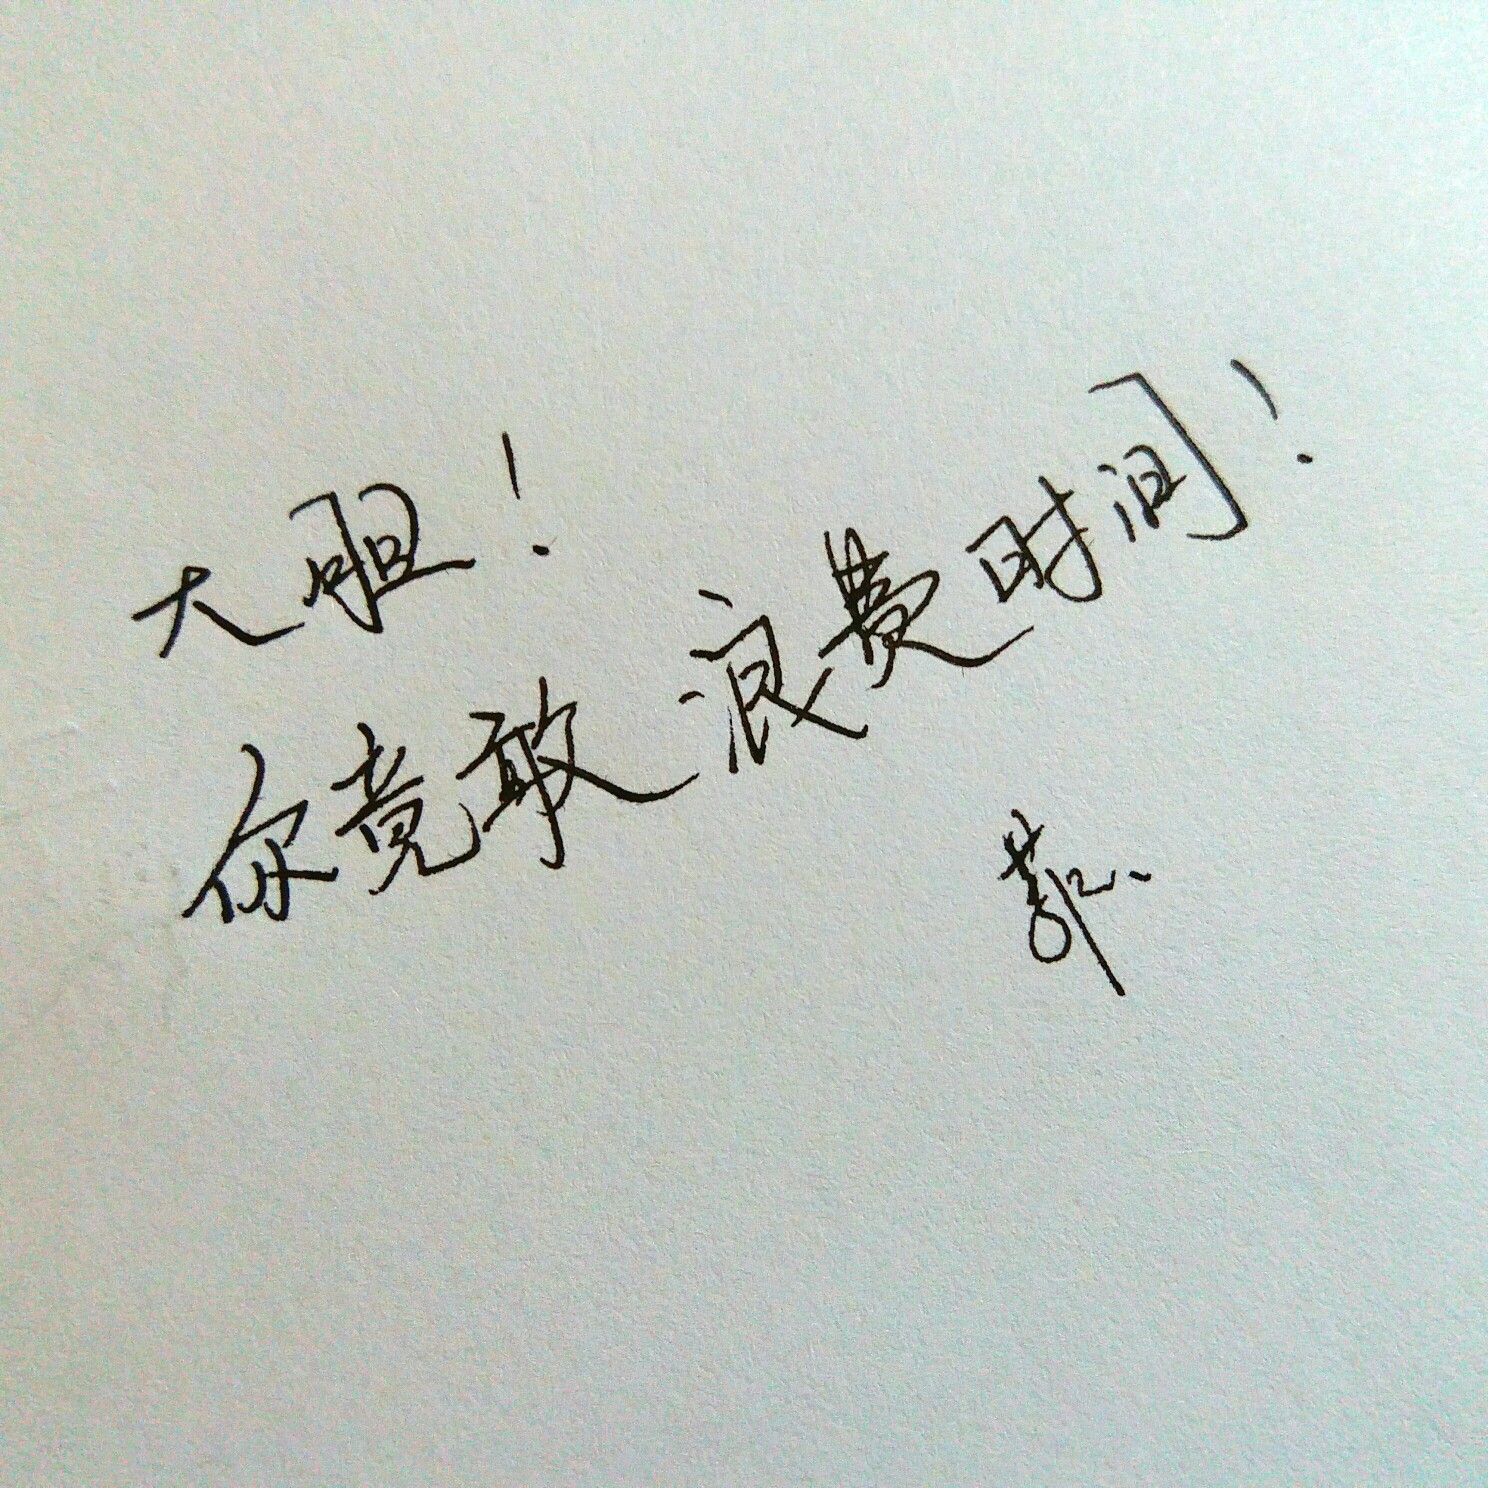 大胆！
你竟敢浪费时间！